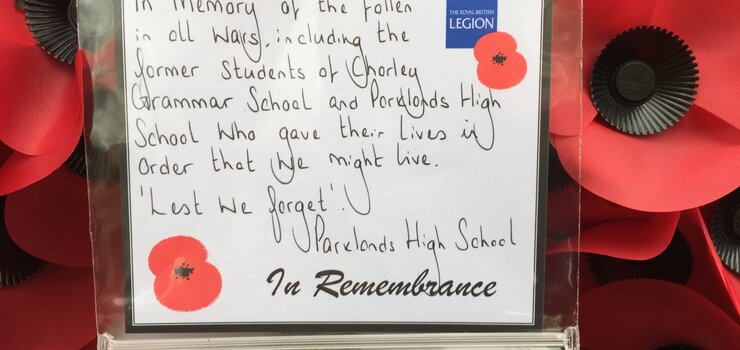 In Memory of the fallen
in all Wars, including the
former Students of Chorley
Grammar School and Parklands High
School who gave their lives in
order that we might live.
'Lest we forget'.
Parklands High School
In Remembrance
THE ROYAL BRITISH
LEGION